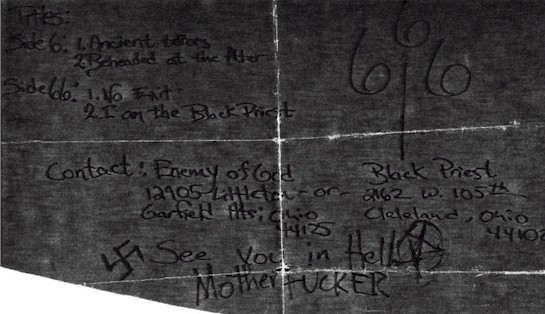 Titles:
Side 6: 1. Ancient terrors
2. Beheaded at the Alter
Side 66: 1. No Exit
2. I am the Black Priest
666
Contact: Enemy of God -or- Black Priest
12905 Littleton 2162 W. 105th
Garfield Hts; Ohio Cleleland, Ohio
44125 44102
See you in Hell
MotherFUCKER